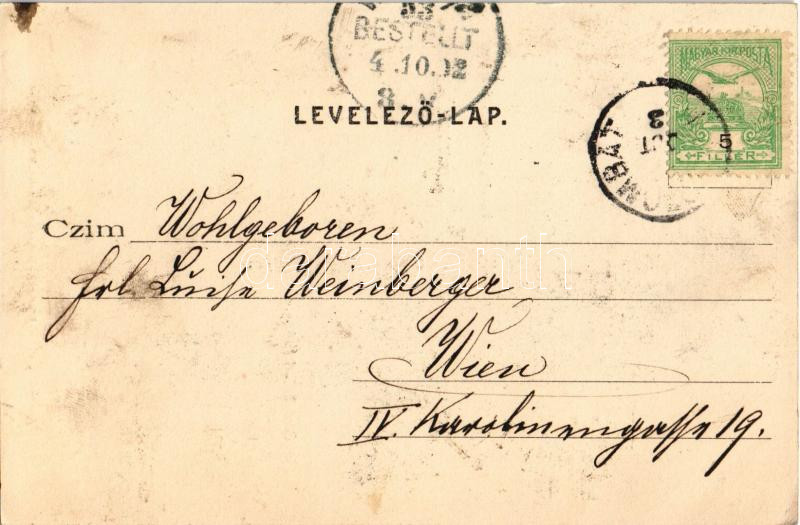 BESTELLT
4.10.02
8
LEVELEZŐ-LAP.
MAGYAR KIR. POSTA
5
FILLÉR
OCT
3
Czim Wohlgeboren
Frl Luise Weinberger
Wien
IV. Karolinengasse 19.
darabanth